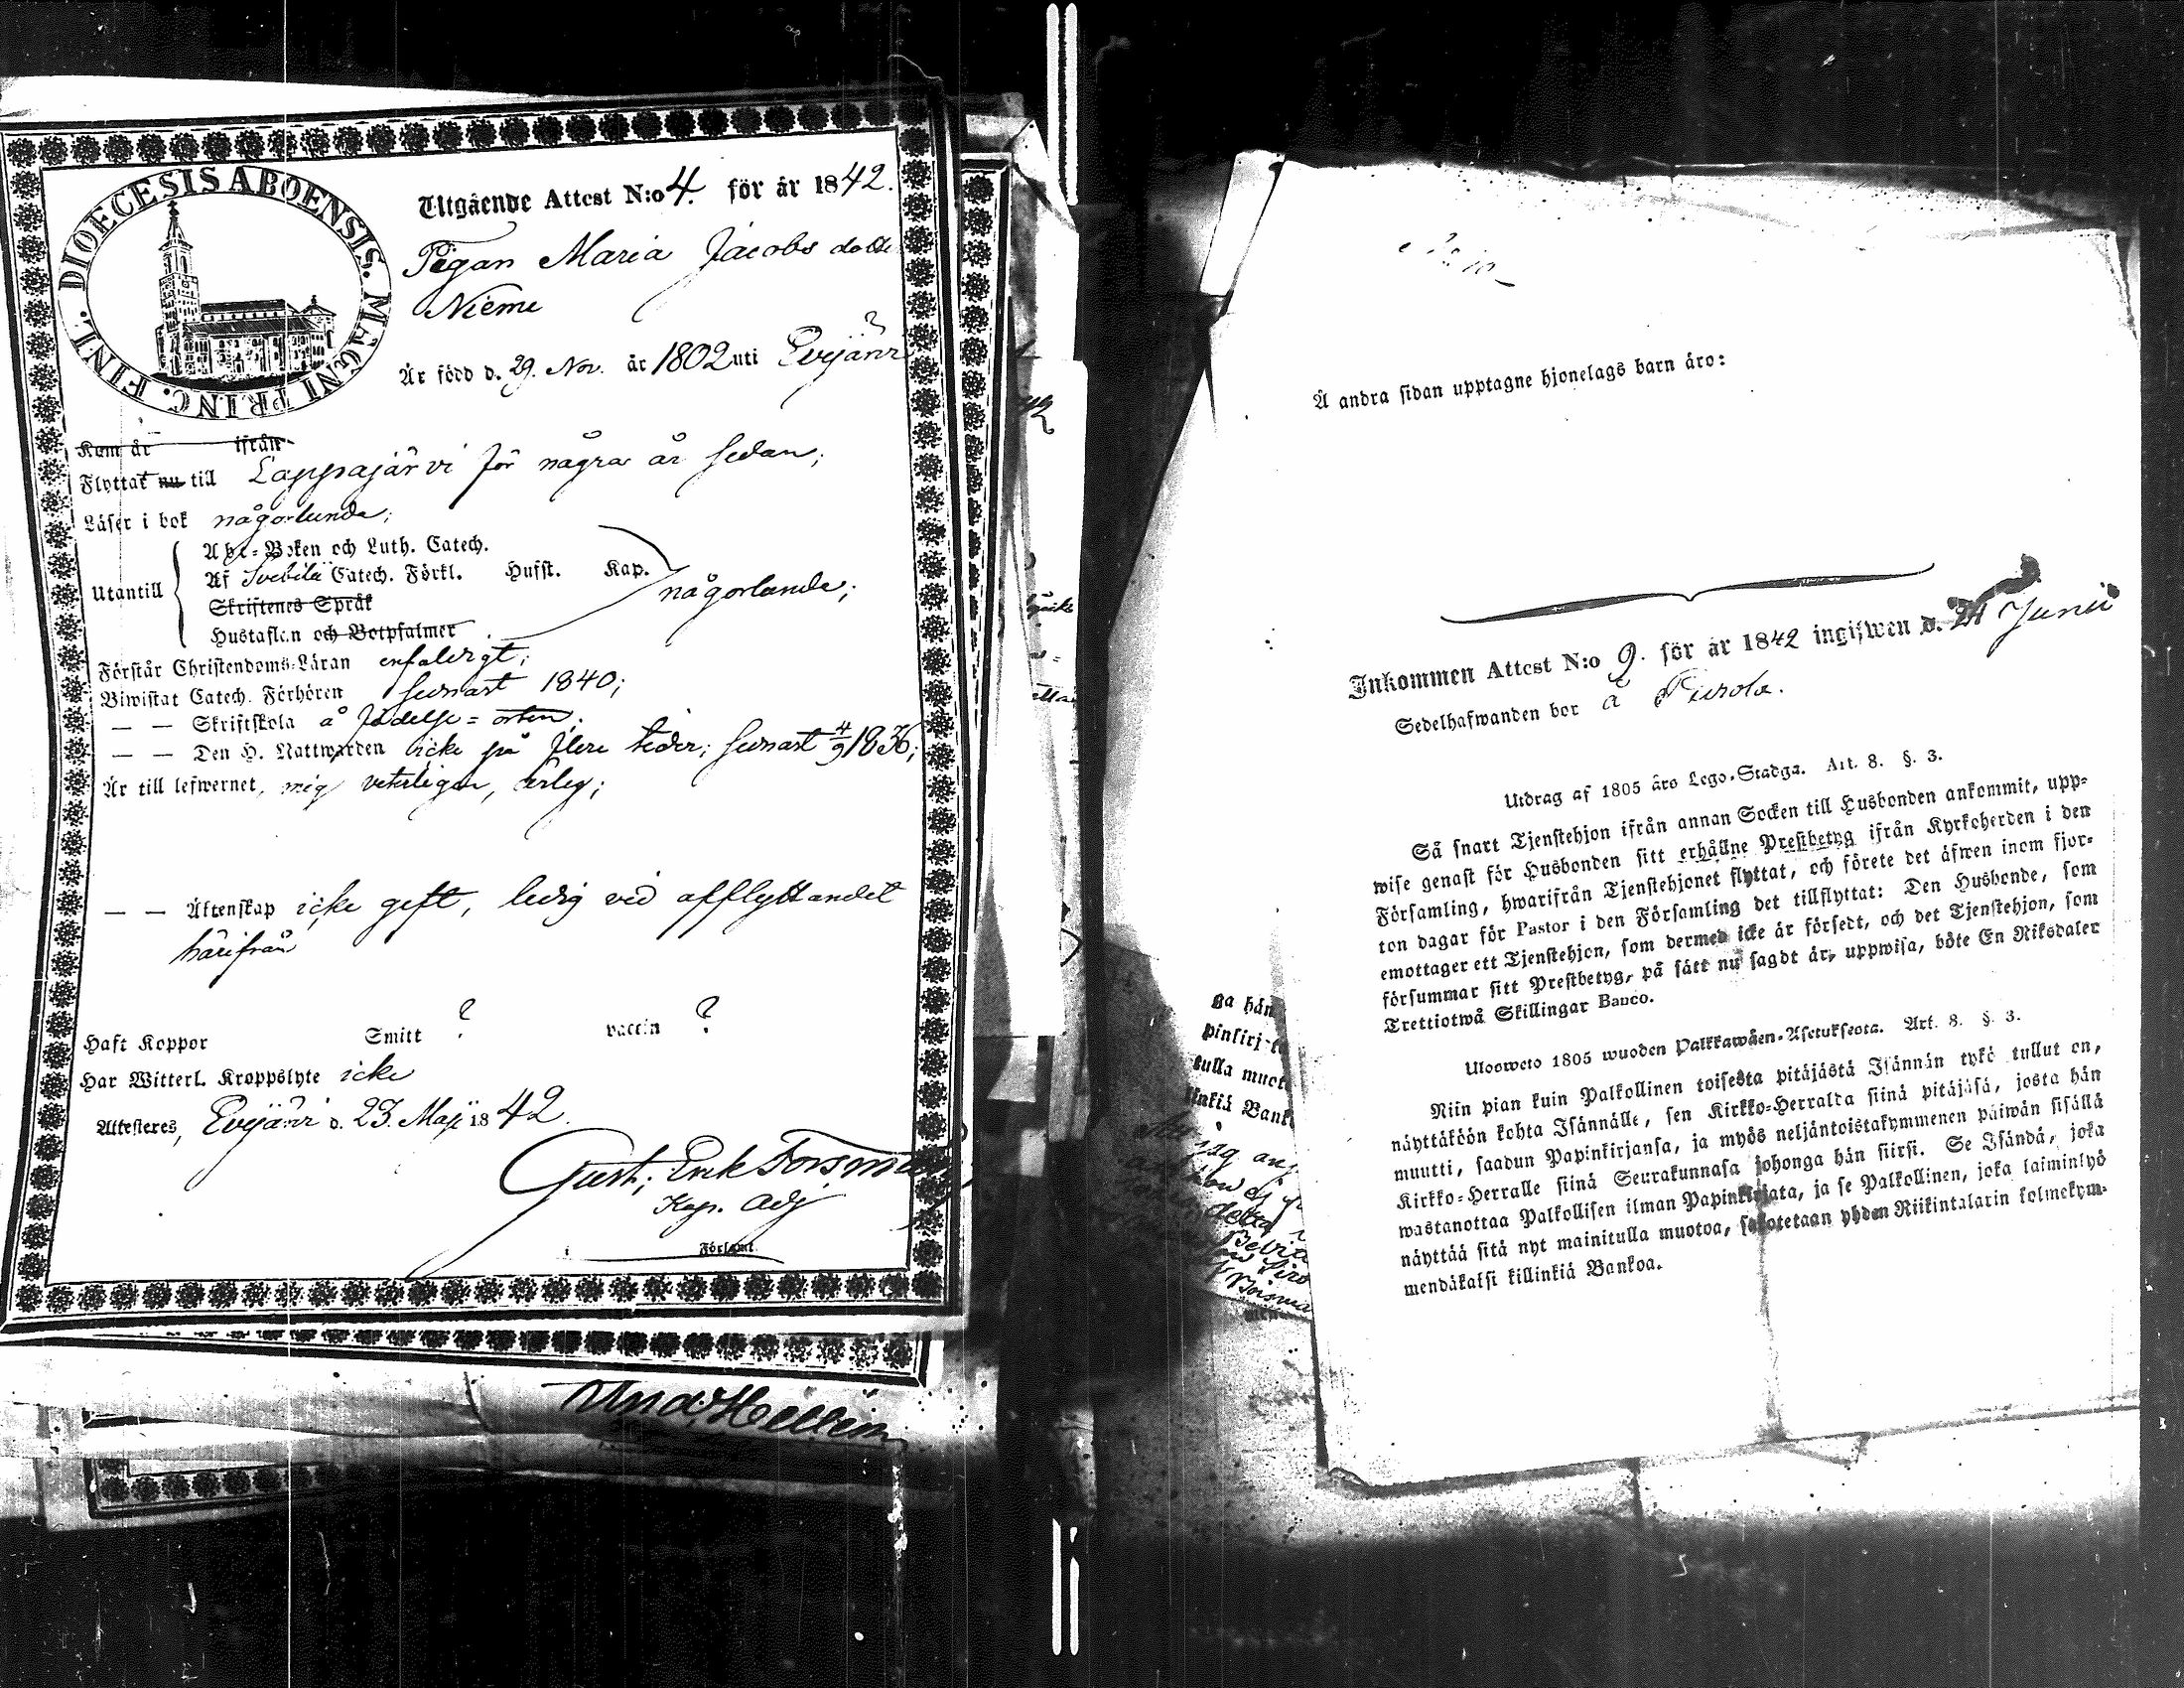 DIOECESIS ABOENSIS. MAGNI PRINC. FINL.
Utgående Attest N:o 4. för år 1842.
Pigan Maria Jacobs dotter
Niemi
Är född d. 29. Nov. år 1802 uti Evijärvi
Kom år ifrån
Flyttat nu till Lappajärvi för några år sedan;
Läser i bok någorlunda;
Utantill
Abc-Boken och Luth. Catech.
Af Svebilii Catech. Förkl. Husst. Kap.
någorlunda;
Skriftenes Språk
Hustaflan och Botpsalmer
Förstår Christendoms-Läran enfaldigt;
Biwistat Catech. Förhören senast 1840;
— — Skriftskola å födelse-orten;
— — Den H. Nattwarden icke på flere tider; senast 4/9 1836;
Är till lefwernet, mig veterligen, ärlig;
— — Äktenskap icke gift, ledig vid afflyttandet
härifrån
Haft Koppor Smitt ? vaccin ?
Har Witterl. Kroppslyte icke
Attesteres, Evijärvi d. 23. Maji 1842.
Gust. Erik Forsman
Kap. Adj
i Församl.
Å andra sidan upptagne hjonelags barn äro:
Inkommen Attest N:o 9. för år 1842 ingifwen d. 24 Junii
Sedelhafwanden bor å Purola.
Utdrag af 1805 års Lego-Stadga. Art. 8. §. 3.
Så snart Tjenstehjon ifrån annan Socken till Husbonden ankommit, upp-
wise genast för Husbonden sitt erhållne Prestbetyg ifrån Kyrkoherden i den
Församling, hwarifrån Tjenstehjonet flyttat, och förete det äfwen inom fjor-
ton dagar för Pastor i den Församling det tillflyttat: Den Husbonde, som
emottager ett Tjenstehjon, som dermed icke är försedt, och det Tjenstehjon, som
försummar sitt Prestbetyg, på sätt nu sagdt är, uppwisa, böte En Riksdaler
Trettiotwå Skillingar Banco.
Uloosweto 1805 wuoden Palkkawäen-Asetuksesta. Art. 8. §. 3.
Niin pian kuin Palkollinen toisesta pitäjästä Isännän tykö tullut on,
näyttäköön kohta Isännälle, sen Kirkko-Herralta siinä pitäjäsä, josta hän
muutti, saadun Papinkirjansa, ja myös neljäntoistakymmenen päiwän sisällä
Kirkko-Herralle siinä Seurakunnasa johonga hän siirsi. Se Isändä, joka
wastanottaa Palkollisen ilman Papinkirjata, ja se Palkollinen, joka laiminlyö
näyttää sitä nyt mainitulla muotoa, sakotetaan yhden Riikintalarin kolmekym-
mendäkaksi killinkiä Bankoa.